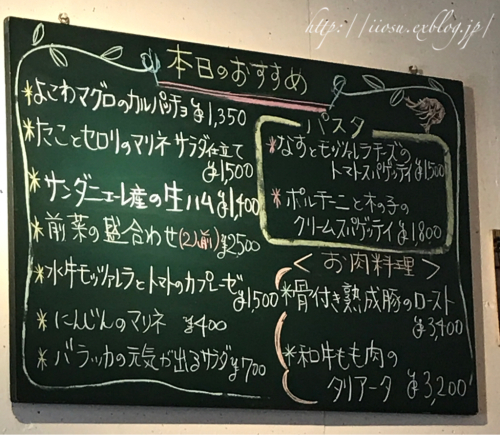 http://iiosu.exblog.jp/
本日のおすすめ
*よこわマグロのカルパッチョ ¥1,350
*たことセロリのマリネ サラダ仕立て
¥1500
*サンダニエーレ産の生ハム ¥1,400
*前菜の盛合わせ(2人前) ¥2500
*水牛モッツァレラとトマトのカプレーゼ
¥1500
*にんじんのマリネ ¥400
*バラッカの元気が出るサラダ ¥700
パスタ
*なすとモッツァレラチーズの
トマトスパゲッティ ¥1500
*ポルチーニと木の子の
クリームスパゲッティ ¥1,800
<お肉料理>
*骨付き熟成豚のロースト
¥3,400
*和牛もも肉の
タリアータ ¥3,200